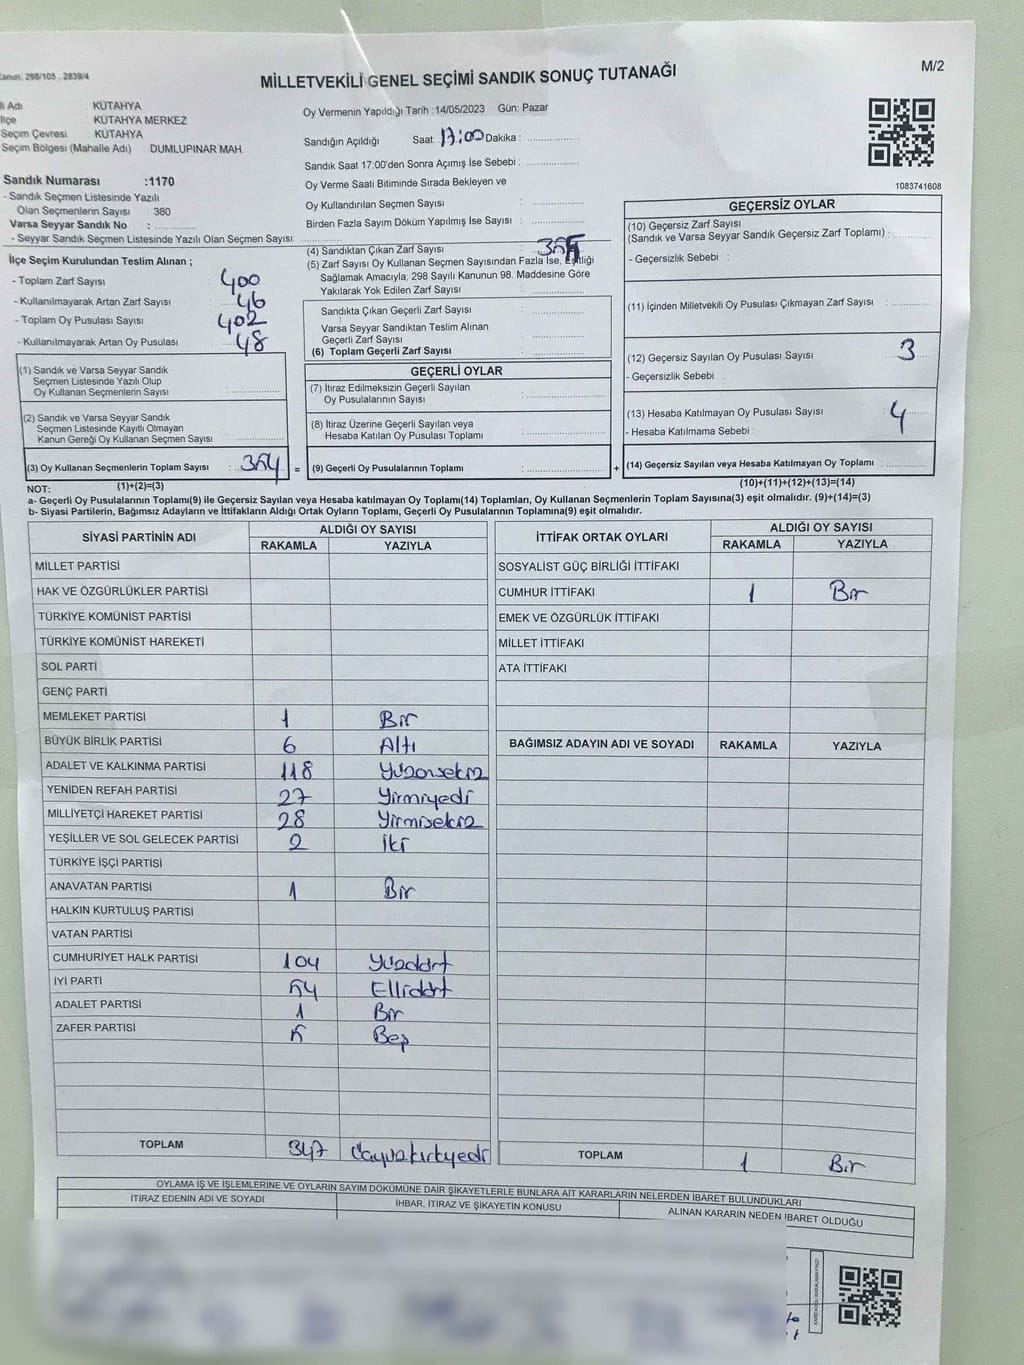 Kanun: 298/105 , 2839/4
M/2
MİLLETVEKİLİ GENEL SEÇİMİ SANDIK SONUÇ TUTANAĞI
İl Adı : KÜTAHYA
İlçe : KÜTAHYA MERKEZ
Seçim Çevresi : KÜTAHYA
Seçim Bölgesi (Mahalle Adı) : DUMLUPINAR MAH.
Sandık Numarası :1170
- Sandık Seçmen Listesinde Yazılı
Olan Seçmenlerin Sayısı : 380
Varsa Seyyar Sandık No :
- Seyyar Sandık Seçmen Listesinde Yazılı Olan Seçmen Sayısı:
İlçe Seçim Kurulundan Teslim Alınan ;
- Toplam Zarf Sayısı : 400
- Kullanılmayarak Artan Zarf Sayısı : 46
- Toplam Oy Pusulası Sayısı : 402
- Kullanılmayarak Artan Oy Pusulası : 48
(1) Sandık ve Varsa Seyyar Sandık
Seçmen Listesinde Yazılı Olup
Oy Kullanan Seçmenlerin Sayısı :
(2) Sandık ve Varsa Seyyar Sandık
Seçmen Listesinde Kayıtlı Olmayan
Kanun Gereği Oy Kullanan Seçmen Sayısı :
(3) Oy Kullanan Seçmenlerin Toplam Sayısı : 354
(1)+(2)=(3)
Oy Vermenin Yapıldığı Tarih :14/05/2023 Gün: Pazar
Sandığın Açıldığı Saat: 17:00 Dakika :
Sandık Saat 17:00'den Sonra Açımış İse Sebebi :
Oy Verme Saati Bitiminde Sırada Bekleyen ve
Oy Kullandırılan Seçmen Sayısı :
Birden Fazla Sayım Döküm Yapılmış İse Sayısı :
(4) Sandıktan Çıkan Zarf Sayısı :
(5) Zarf Sayısı Oy Kullanan Seçmen Sayısından Fazla İse, Eşitliği
Sağlamak Amacıyla, 298 Sayılı Kanunun 98. Maddesine Göre
Yakılarak Yok Edilen Zarf Sayısı :
Sandıkta Çıkan Geçerli Zarf Sayısı :
Varsa Seyyar Sandıktan Teslim Alınan
Geçerli Zarf Sayısı :
(6) Toplam Geçerli Zarf Sayısı :
GEÇERLİ OYLAR
(7) İtiraz Edilmeksizin Geçerli Sayılan
Oy Pusulalarının Sayısı :
(8) İtiraz Üzerine Geçerli Sayılan veya
Hesaba Katılan Oy Pusulası Toplamı :
= (9) Geçerli Oy Pusulalarının Toplamı :
1083741608
GEÇERSİZ OYLAR
(10) Geçersiz Zarf Sayısı
(Sandık ve Varsa Seyyar Sandık Geçersiz Zarf Toplamı) :
- Geçersizlik Sebebi :
(11) İçinden Milletvekili Oy Pusulası Çıkmayan Zarf Sayısı :
(12) Geçersiz Sayılan Oy Pusulası Sayısı : 3
- Geçersizlik Sebebi :
(13) Hesaba Katılmayan Oy Pusulası Sayısı : 4
- Hesaba Katılmama Sebebi :
+ (14) Geçersiz Sayılan veya Hesaba Katılmayan Oy Toplamı :
(10)+(11)+(12)+(13)=(14)
NOT:
a- Geçerli Oy Pusulalarının Toplamı(9) ile Geçersiz Sayılan veya Hesaba katılmayan Oy Toplamı(14) Toplamları, Oy Kullanan Seçmenlerin Toplam Sayısına(3) eşit olmalıdır. (9)+(14)=(3)
b- Siyasi Partilerin, Bağımsız Adayların ve İttifakların Aldığı Ortak Oyların Toplamı, Geçerli Oy Pusulalarının Toplamına(9) eşit olmalıdır.
SİYASİ PARTİNİN ADI ALDIĞI OY SAYISI
RAKAMLA YAZIYLA
MİLLET PARTİSİ
HAK VE ÖZGÜRLÜKLER PARTİSİ
TÜRKİYE KOMÜNİST PARTİSİ
TÜRKİYE KOMÜNİST HAREKETİ
SOL PARTİ
GENÇ PARTİ
MEMLEKET PARTİSİ 1 Bir
BÜYÜK BİRLİK PARTİSİ 6 Altı
ADALET VE KALKINMA PARTİSİ 118 Yüzonsekiz
YENİDEN REFAH PARTİSİ 27 Yirmiyedi
MİLLİYETÇİ HAREKET PARTİSİ 28 Yirmisekiz
YEŞİLLER VE SOL GELECEK PARTİSİ 2 İki
TÜRKİYE İŞÇİ PARTİSİ
ANAVATAN PARTİSİ 1 Bir
HALKIN KURTULUŞ PARTİSİ
VATAN PARTİSİ
CUMHURİYET HALK PARTİSİ 104 Yüzdört
İYİ PARTİ 54 Ellidört
ADALET PARTİSİ 1 Bir
ZAFER PARTİSİ 5 Beş
TOPLAM 347 Üçyüzkırkyedi
İTTİFAK ORTAK OYLARI ALDIĞI OY SAYISI
RAKAMLA YAZIYLA
SOSYALİST GÜÇ BİRLİĞİ İTTİFAKI
CUMHUR İTTİFAKI 1 Bir
EMEK VE ÖZGÜRLÜK İTTİFAKI
MİLLET İTTİFAKI
ATA İTTİFAKI
BAĞIMSIZ ADAYIN ADI VE SOYADI RAKAMLA YAZIYLA
TOPLAM 1 Bir
OYLAMA İŞ VE İŞLEMLERİNE VE OYLARIN SAYIM DÖKÜMÜNE DAİR ŞİKAYETLERLE BUNLARA AİT KARARLARIN NELERDEN İBARET BULUNDUKLARI
İTİRAZ EDENİN ADI VE SOYADI İHBAR, İTİRAZ VE ŞİKAYETİN KONUSU ALINAN KARARIN NEDEN İBARET OLDUĞU